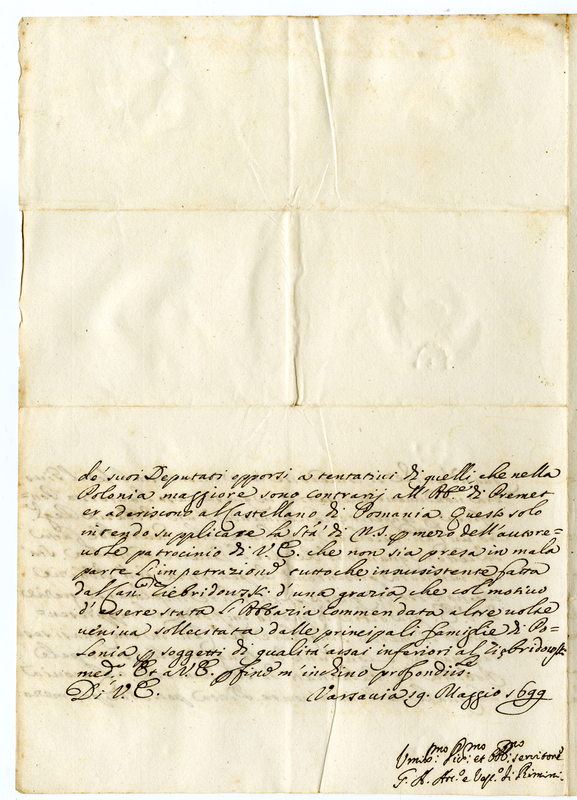 de' suoi Deputati opporsi a tentativi di quelli, che nella
Polonia maggiore sono contrarij all'Ab.e di Premet
et aderiscono al Castellano di Posnania. Questo solo
intendo supplicare la S.tà di N.S. p mezo dell'autore=
vole patrocinio di V.E. che non sia presa in mala
parte l'impetrazione tutto che insussistente fatta
dal Can.
d'una grazia, che col motivo
d'essere stata l'Abbazia commendata altre volte
veniva sollecitata dalle principali famiglie di Po=
lonia p soggetti di qualità assai inferiori al
med.o Et a V.E. p fine m'inchino profondiss.te
Di V.E. Varsavia 19. Maggio 1699
Umil.mo Div.mo et Obb.mo servitore
G. A. Arc.o e Vesc.o di Rimini